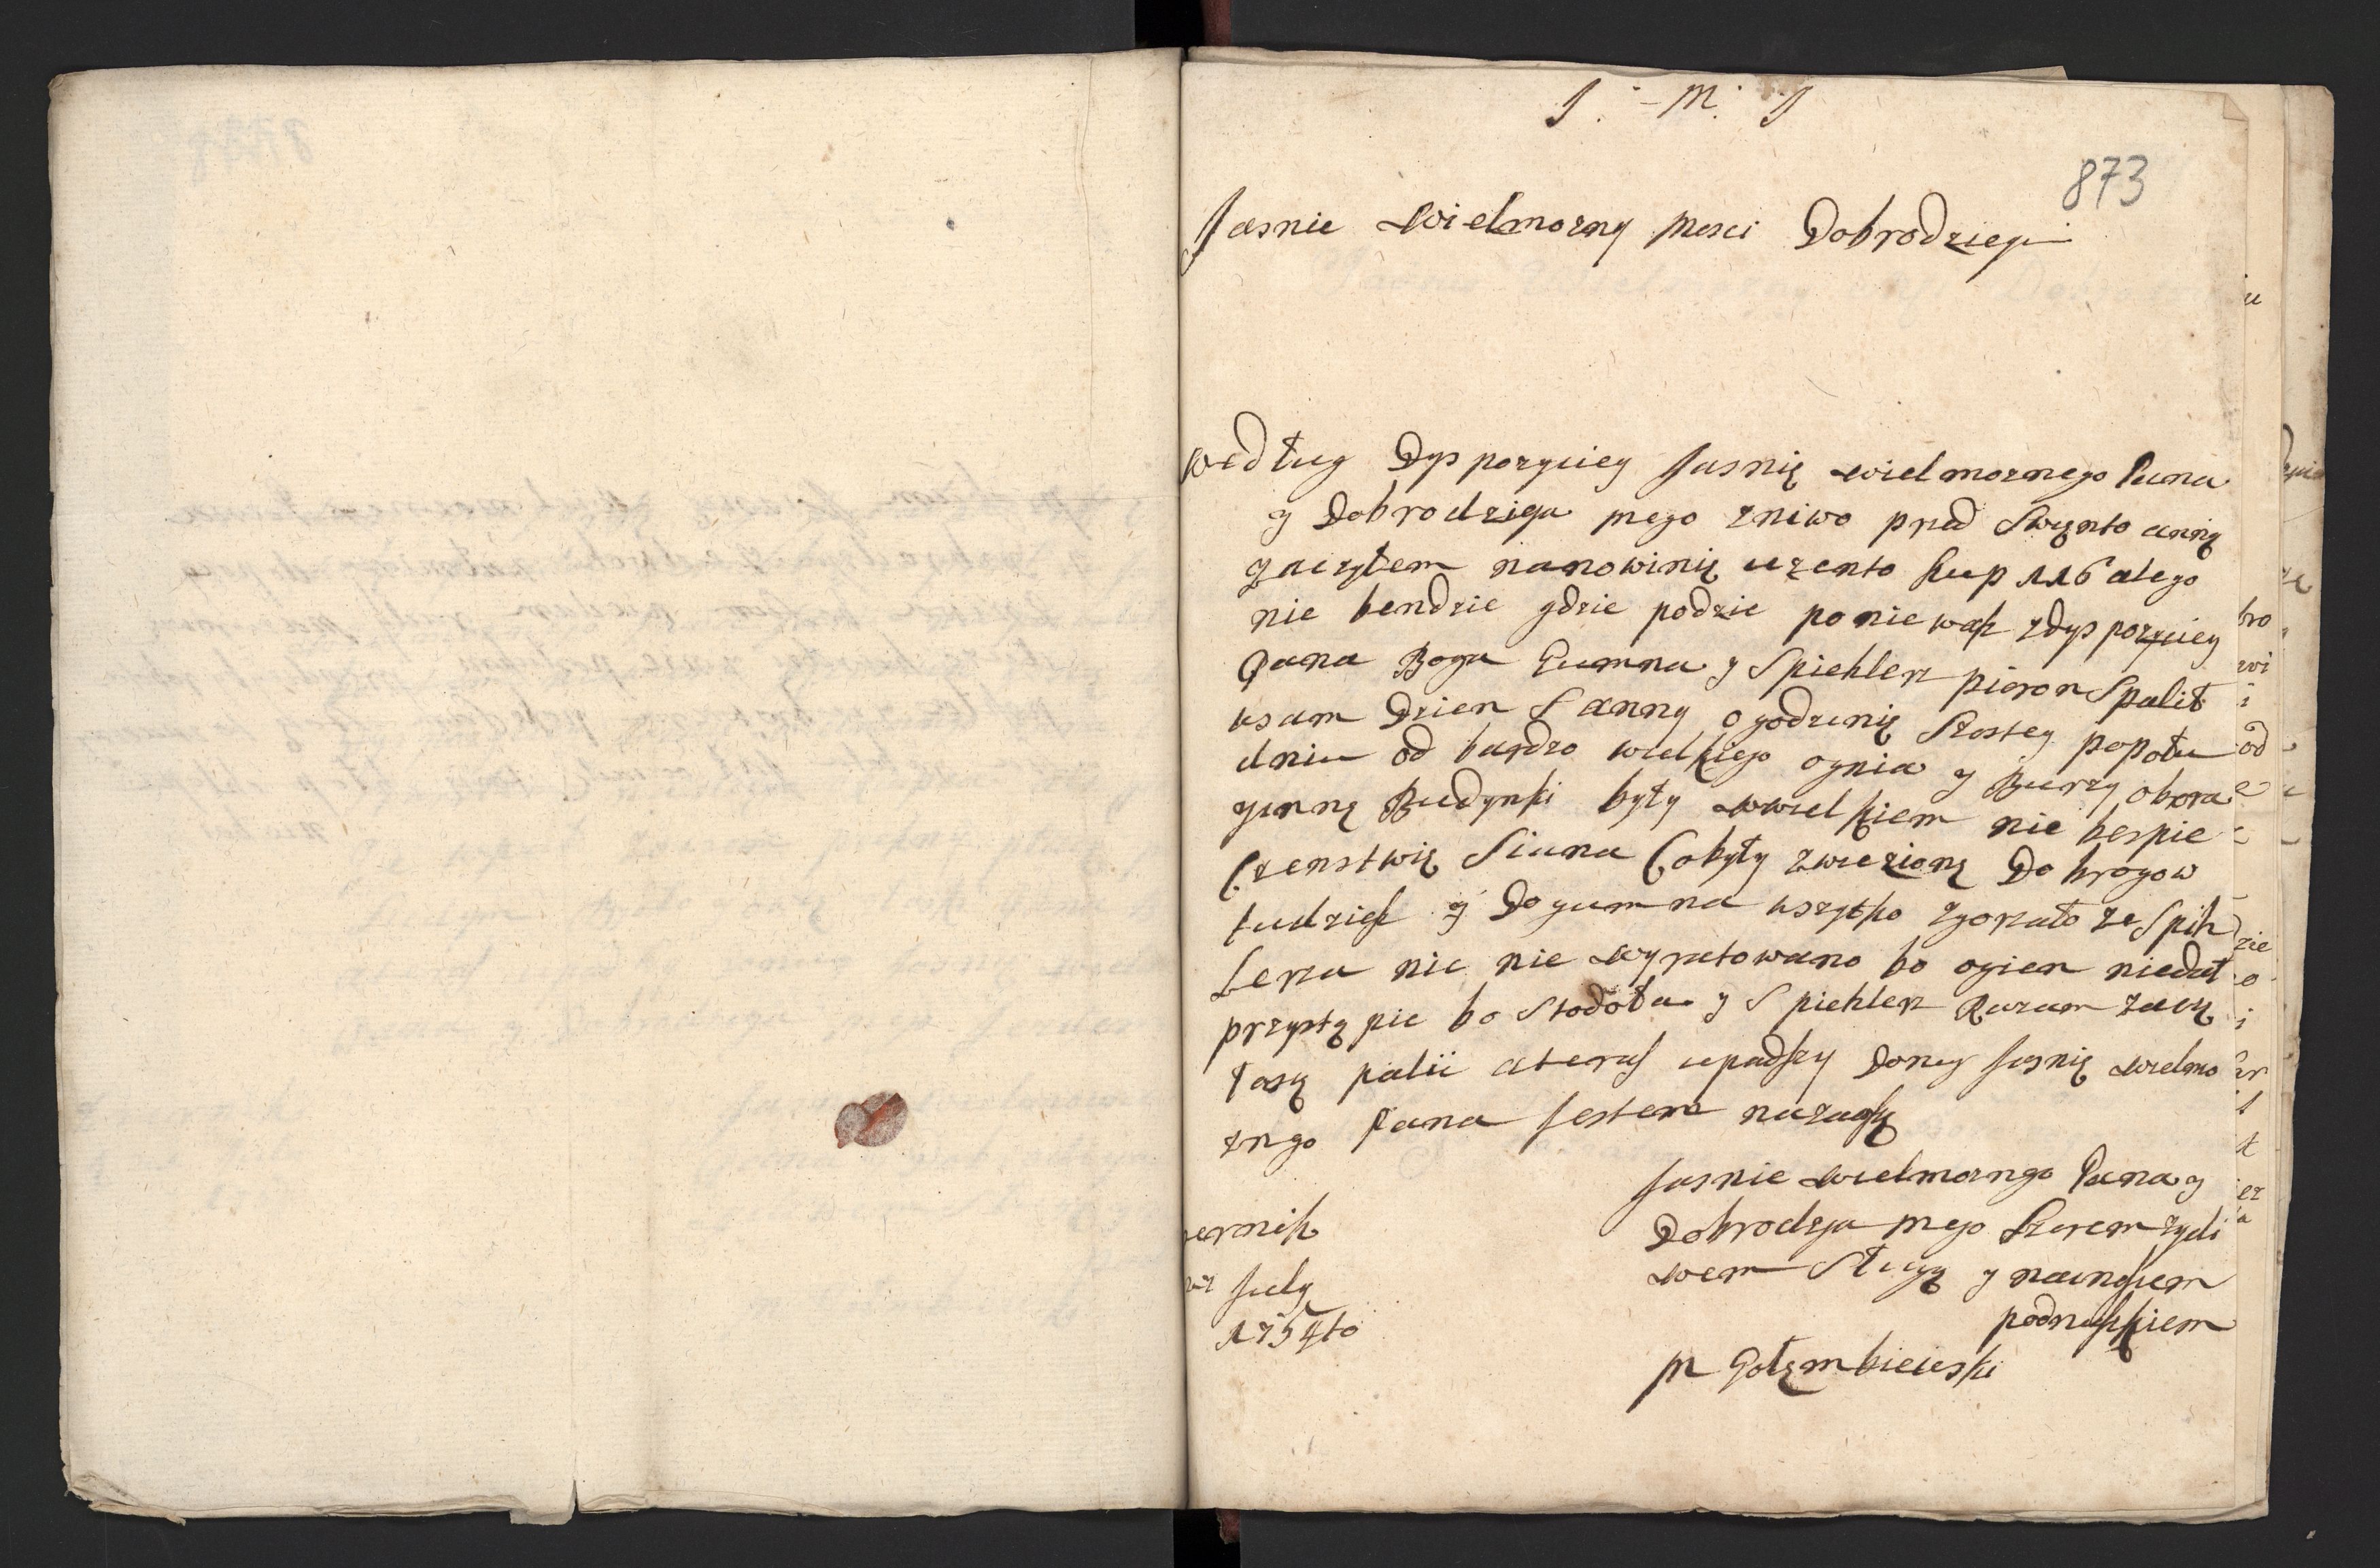 J. - M. J
873
Jasnie Wielmozny Mosci Dobrodzieju
według Dyspozyciey Jasnię wielmoznego Pana
y Dobrodzieja mego zniwo przd Swięnto annę
zaczyłem nanowinię uzento kup 116 alego
nie bendzie gdzie podzie poniewasz zdyspozyciey
Pana Boga Gumna y Spiehlerz pioron Spalił
wsam Dzien S anny ogodzinię Szostey popołu
dniu od bardzo wielkiego ognia y Burzy obora
yinnę Budynki były wwielkiem nie bespie
Czenstwię Siana Cobyły zwiezionę Do brogow
tudziesz y Dogumna wszytko zgorzało ze Spih
Lerza nic nie wyratowano bo ogien niedał
przystąpic bo Stodoła y Spiehlerz Razam zacz
łosię palii ateras upadszy Donog Jasnię wielmo
zngo Pana Jestem nazawszę
Jasnie wielmozngo Pana y
Dobrodzja mego Szczerem zycli
wem Sługą y nainszem
podnuszkiem
M Gołęmbiewski
July
1754to